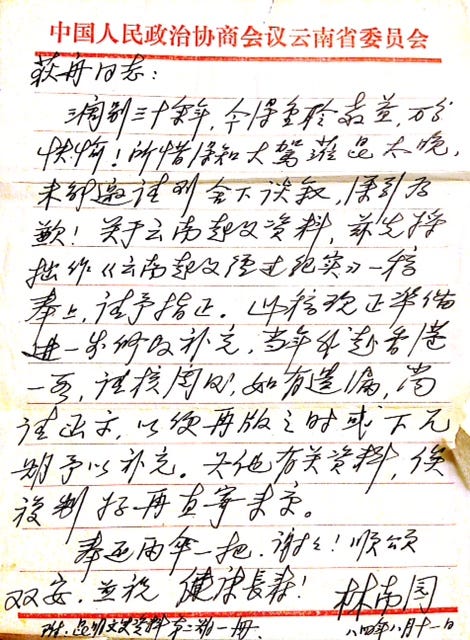 中国人民政治协商会议云南省委员会
荻舟同志：
阔别三十余年，今得重聆教益，万分
快慰！所惜得知大驾莅昆太晚，
未能邀请到舍下谈叙，深引为
歉！关于云南起义资料，兹先将
拙作《云南起义经过纪实》一稿
奉上，请予指正。此稿现正准备
进一步修改补充，当年外赴香港
一节，请核阅时，如有遗漏，尚
请函示，以便再版之时或下元
期予以补充。其他有关资料，俟
复制好再直寄来京。
奉还雨伞一把，谢谢！顺颂
双安，并祝 健康长寿！
林南园
八四年八月十一日
附：昆明文史资料第二期一册